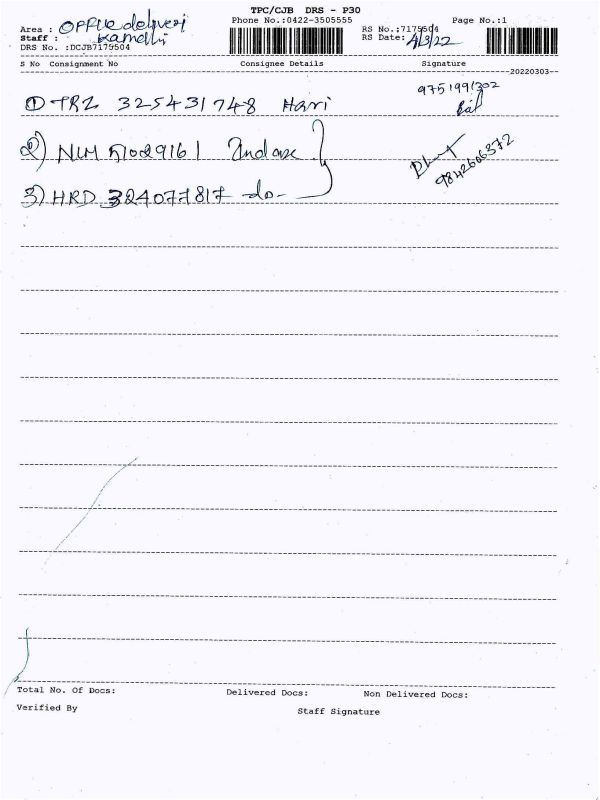 TPC/CJB DRS - P30
Area : OFFice deliveri Phone No.:0422-3505555 RS No.:7175504 Page No.:1
Staff : Kamalli RS Date: 4/3/22
DRS No. :DCJB7175504
S No Consignment No Consignee Details Signature
20220303
9751991302
1) TRZ 325431748 Hari
2) NLM 51029161
9842606372
3) HRD 324077817 do-
Total No. Of Docs: Delivered Docs: Non Delivered Docs:
Verified By Staff Signature